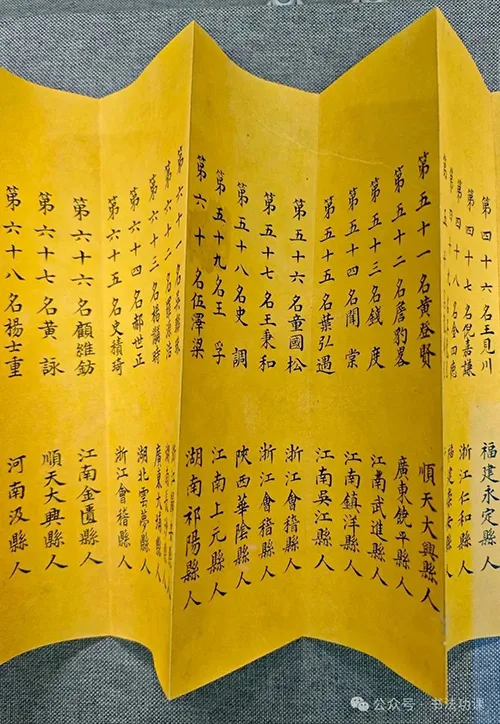 第四十六名王見川 福建永定縣人
第四十七名倪嘉謙 浙江仁和縣人
第四十八名金四 縣人
第五十一名黃登賢 順天大興縣人
第五十二名詹豹畧 廣東饒平縣人
第五十三名錢度 江南武進縣人
第五十四名聞棠 江南鎮洋縣人
第五十五名葉弘遇 江南吳江縣人
第五十六名童國松 浙江會稽縣人
第五十七名王秉和 浙江會稽縣人
第五十八名史調 陝西華陰縣人
第五十九名王孚 江南上元縣人
第六十名伍澤梁 湖南祁陽縣人
第六十一名
第六十二名
第六十三名楊黼時 廣東大埔縣人
第六十四名郝世正 湖北雲夢縣人
第六十五名史積琦 浙江會稽縣人
第六十六名顧維鈁 江南金匱縣人
第六十七名黃詠 順天大興縣人
第六十八名楊士重 河南汲縣人
公众号·书法功课